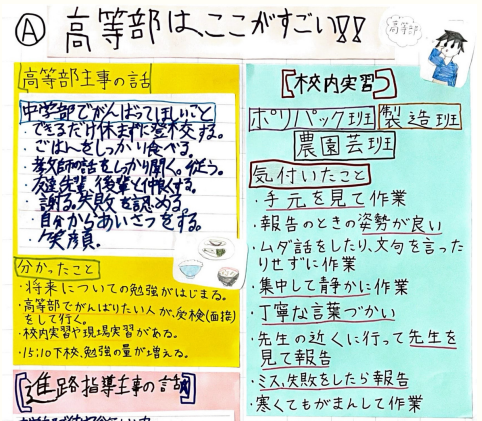 Ⓐ 高等部は、ここがすごい!!
高等部
高等部主事の話
中学部でがんばってほしいこと
・できるだけ休まずに登校する。
・ごはんをしっかり食べる。
・教師の話をしっかり聞く。従う。
・友達、先輩、後輩と仲良くする。
・謝る。失敗を認める
・自分からあいさつをする。
・笑顔。
分かったこと
・将来についての勉強がはじまる。
・高等部でがんばりたい人が、受検(面接)
をして行く。
・校内実習や現場実習がある。
・15:10下校、勉強の量が増える。
進路指導主事の話
【校内実習】
ポリパック班 製造班
農園芸班
気付いたこと
・手元を見て作業
・報告のときの姿勢が良い
・ムダ話をしたり、文句を言った
りせずに作業
・集中して静かに作業
・丁寧な言葉づかい
・先生の近くに行って先生を
見て報告
・ミス、失敗をしたら報告
・寒くてもがまんして作業